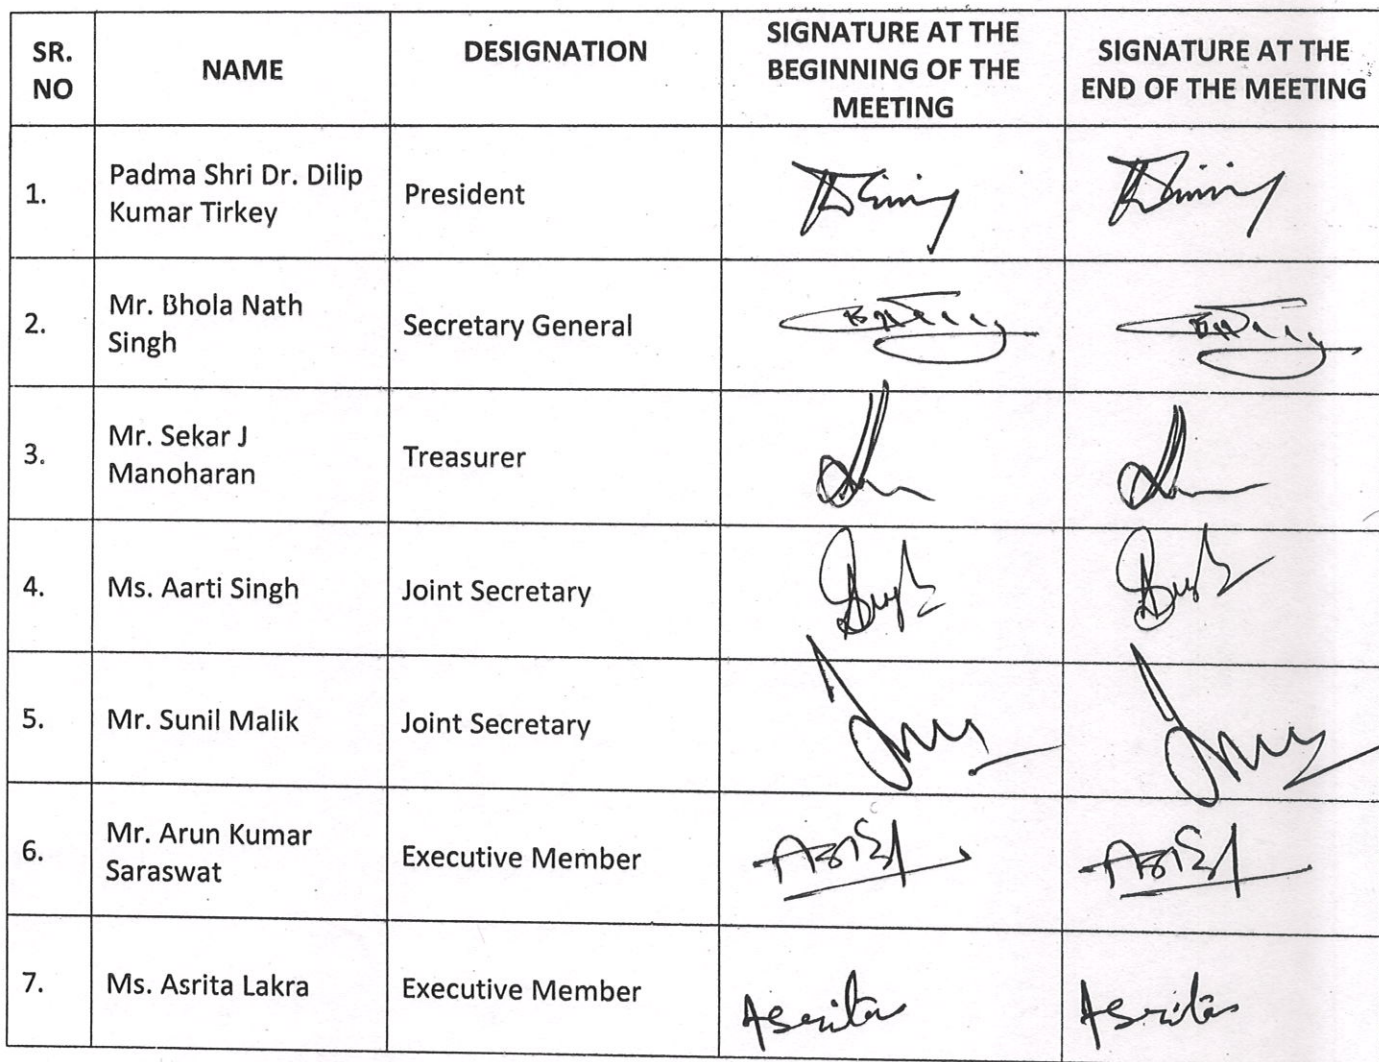 SR. NO
NAME
DESIGNATION
SIGNATURE AT THE
BEGINNING OF THE
MEETING
SIGNATURE AT THE
END OF THE MEETING
1.
Padma Shri Dr. Dilip
Kumar Tirkey
President
2.
Mr. Bhola Nath
Singh
Secretary General
3.
Mr. Sekar J
Manoharan
Treasurer
4.
Ms. Aarti Singh
Joint Secretary
5.
Mr. Sunil Malik
Joint Secretary
6.
Mr. Arun Kumar
Saraswat
Executive Member
7.
Ms. Asrita Lakra
Executive Member
Asrita
Asrita